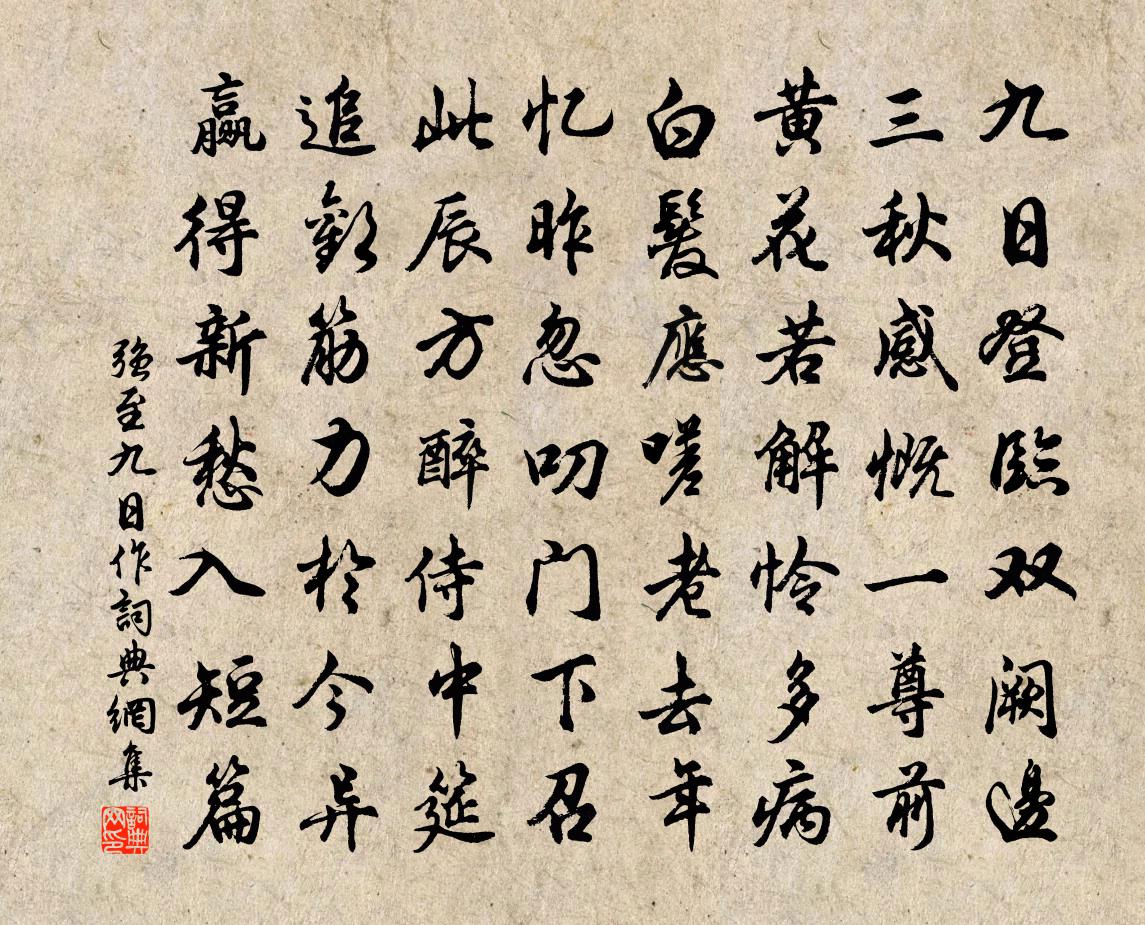 九日登臨双阙邊
三秋感慨一尊前
黄花若解怜多病
白髮應嗟老去年
忆昨忽叨门下召
此辰方醉侍中筵
追歡筋力於今异
赢得新愁入短篇
強至九日作詞典網集
詞典网印